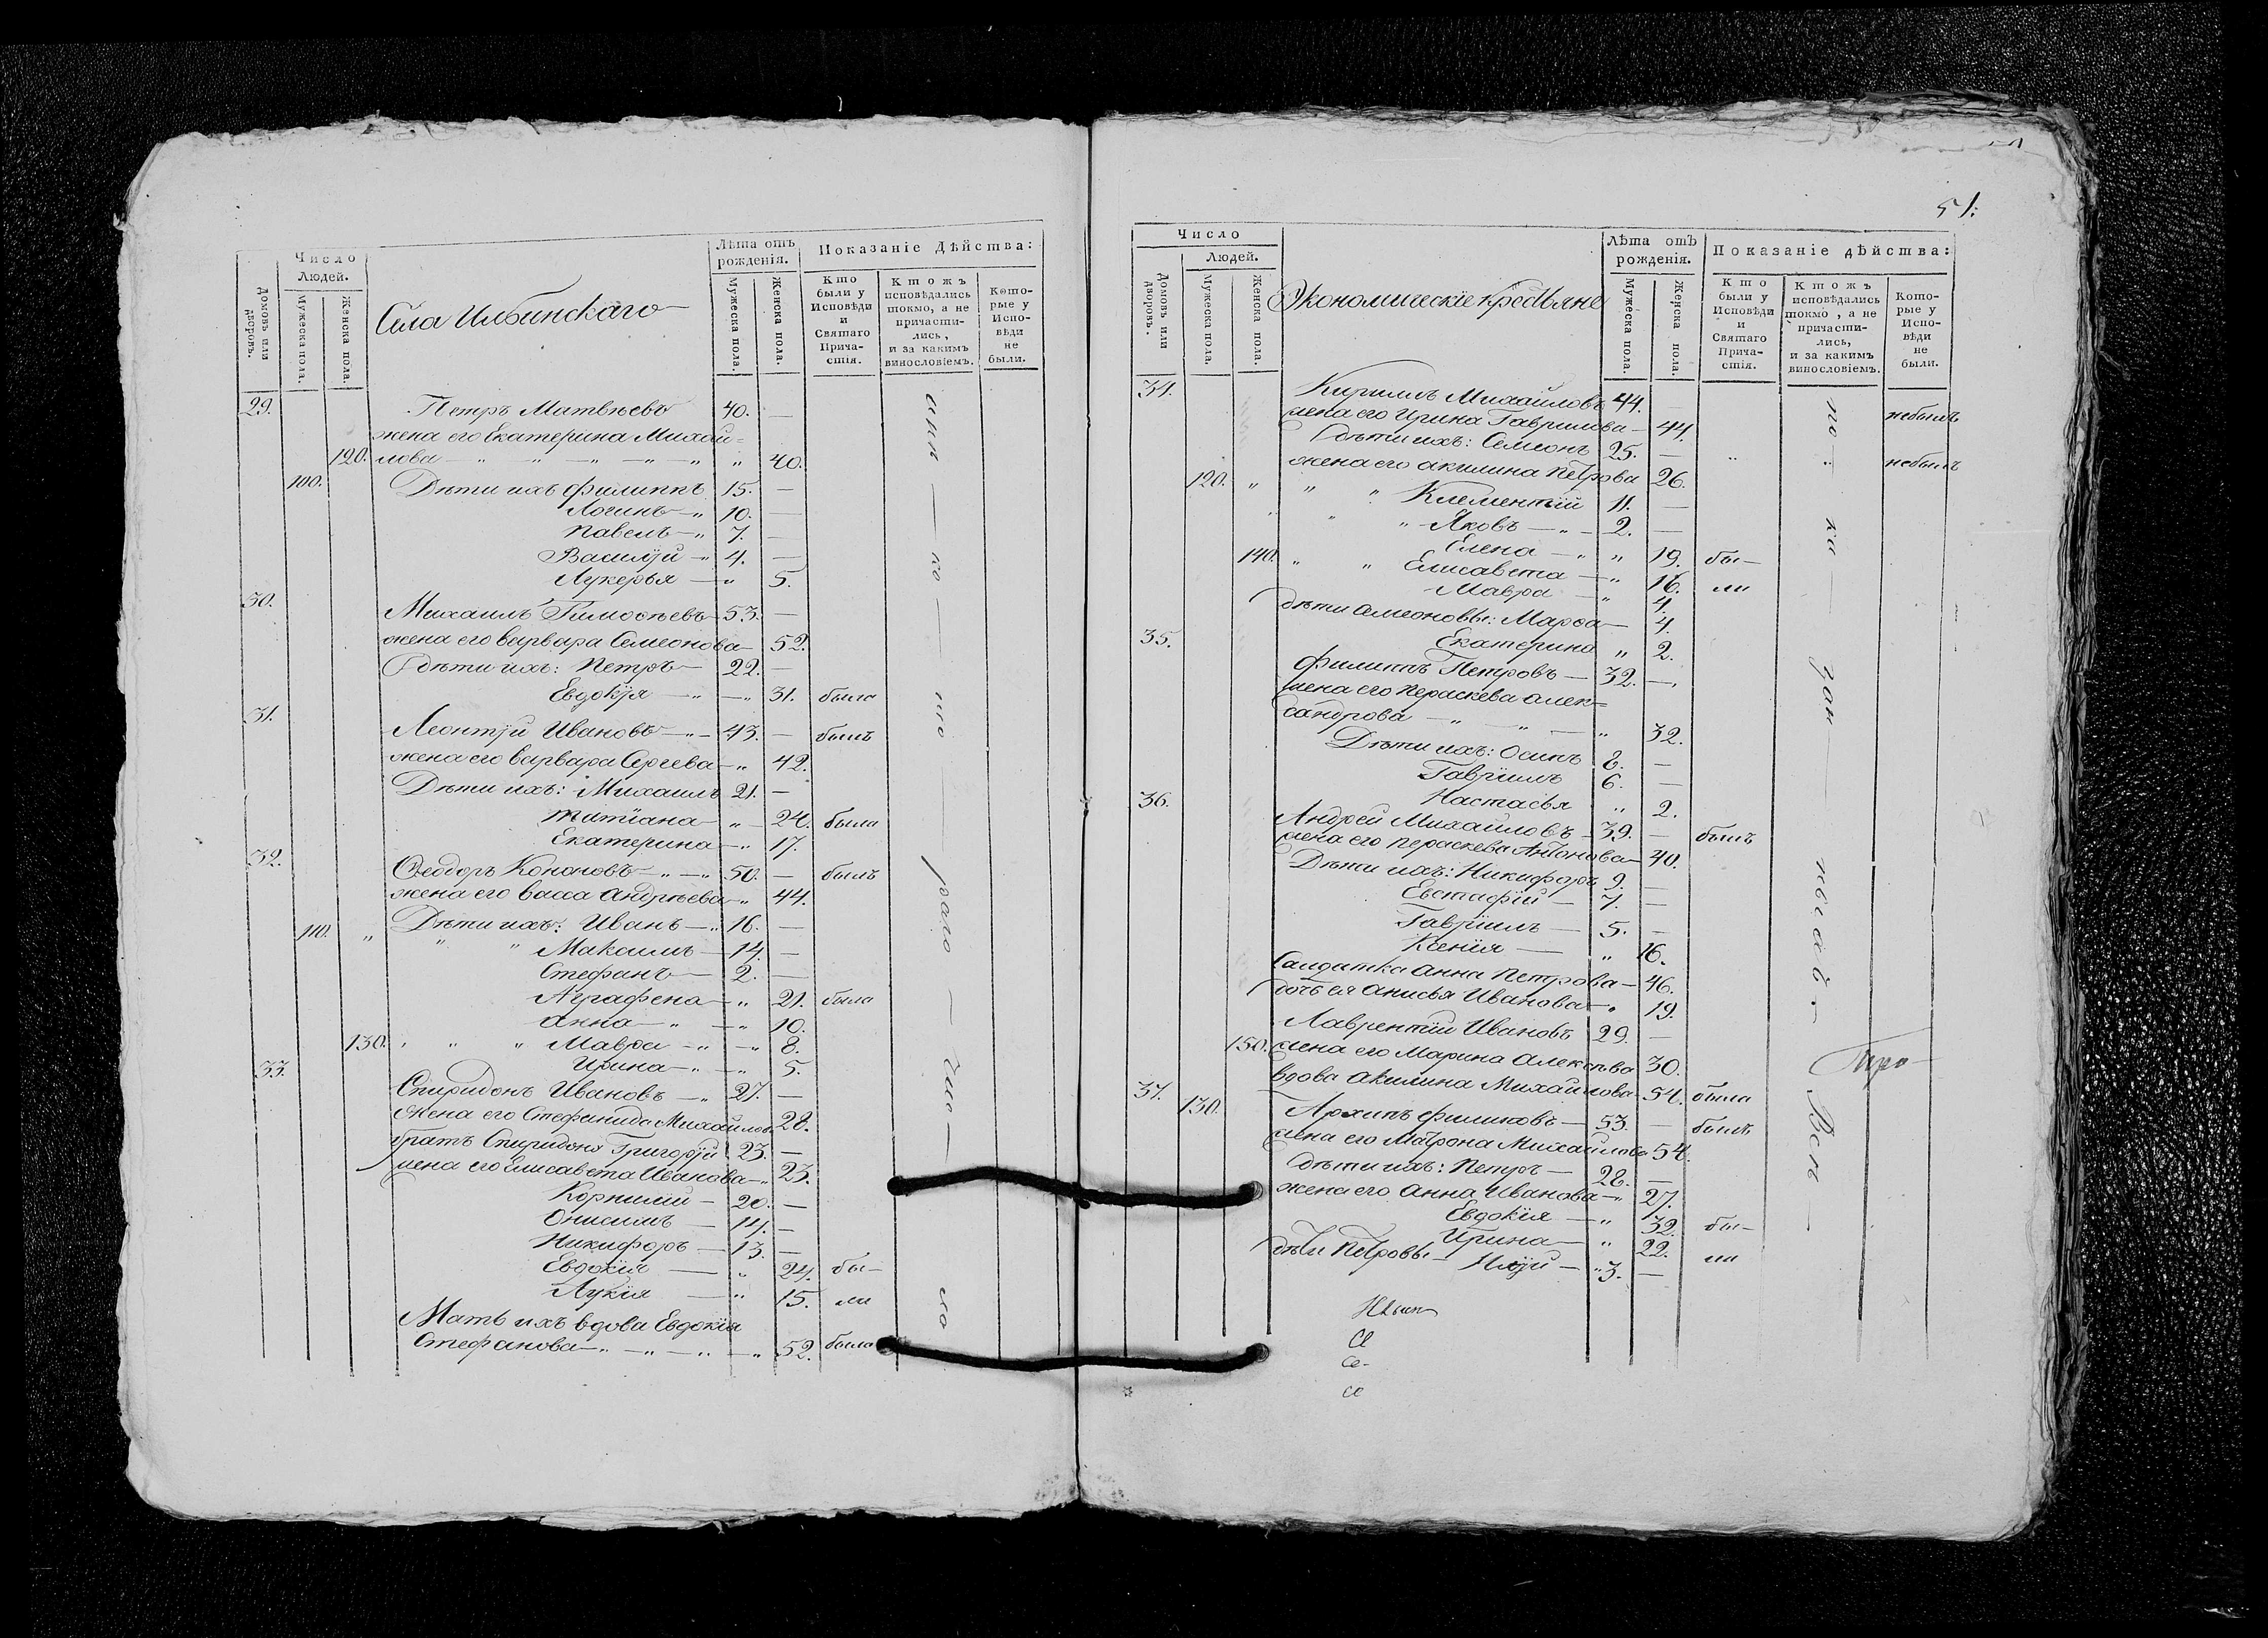 Число
Людей.
Домовъ или дворовъ.
Мужеска пола.
Женска пола.
Села Ильинскаго
Лѣта отъ рожденія.
Мужеска пола.
Женска пола.
Показаніе дѣйства:
Кто были у Исповѣди и Святаго Причастія.
Ктожъ исповѣдались токмо, а не причастились, и за какимъ винословіемъ.
Которые у Исповѣди не были.
29. Петръ Матвѣевъ 40. —
жена его Екатерина Михай=
120. лова — „ — „ — „ — „ „ 40.
100. Дѣти ихъ Филиппъ 15. —
Логинъ — „ 10. —
Павелъ — „ 7. —
Василій — „ 4. —
Лукерья — „ 5.
30. Михаилъ Тимоѳѣевъ 53. —
жена его Варвара Семеонова — 52.
Дѣти ихъ: Петръ — 22. —
Евдокія — „ — „ 31. была
31. Леонтій Ивановъ — „ — 43. — былъ
жена его Варвара Сергеева — „ 42.
Дѣти ихъ: Михаилъ 21. —
Татіана — „ — 24. была
Екатерина — „ 17.
32. Ѳеодоръ Кононовъ — „ — „ 50. — былъ
жена его Васса Андрѣева „ 44.
Дѣти ихъ: Иванъ — „ 16. —
110. „ „ „ Максимъ — 14. —
Стефанъ — 2. —
Аграфена — „ 21. была
Анна — „ — „ 10.
130. „ „ „ Мавра — „ — „ 8.
Ирина — „ — „ 5.
33. Спиридонъ Ивановъ — „ 27. —
жена его Стефанида Михайлов. 28.
братъ Спиридона Григорій 23. —
жена его Елисавета Иванова — „ 23.
Корнилій — 20. —
Онисимъ — 14. —
Никифоръ — 13. —
Евдокія — „ 24. бы-
Лукія — „ 15. ли
Мать ихъ вдова Евдокія
Стефанова — „ — „ — „ — „ 52. была
51.
Число
Людей.
Домовъ или дворовъ.
Мужеска пола.
Женска пола.
Экономическіе крестьяне
Лѣта отъ рожденія.
Мужеска пола.
Женска пола.
Показаніе дѣйства:
Кто были у Исповѣди и Святаго Причастія.
Ктожъ исповѣдались токмо, а не причастились, и за какимъ винословіемъ.
Которые у Исповѣди не были.
34. Кириллъ Михайловъ 44. — небылъ
жена его Ирина Гаврилова — 44.
Дѣти ихъ: Семионъ 25. — „ „ небылъ
жена его Акилина Петрова 26.
120. „ „ „ Клементій 11. —
„ „ Яковъ — „ — 2. —
Елена — „ „ 19. бы-
140. „ „ Елисавета — „ 16. ли
Мавра — „ 4.
дѣти Семеоновы: Марѳа — 4.
Екатерина „ 2.
35. Филиппъ Петровъ — 32. —
жена его Пераскева Алек=
сандрова — „ — „ — „ 32.
Дѣти ихъ: Осипъ 8. —
Гавріилъ 6. —
Настасья „ 2.
36. Андрей Михайловъ — 39. — былъ
жена его Пераскева Антонова — 40.
Дѣти ихъ: Никифоръ 9. —
Евстафій — 7. —
Гавріилъ — 5. —
Ксенія — „ 16.
Салдатка Анна Петрова — 46.
дочь ея Анисья Иванова — „ 19.
Лаврентій Ивановъ 29. —
150. жена его Марина Алексѣва 30.
вдова Акилина Михайлова 54. была
37. 130. Архипъ Филиповъ — 53. — былъ
жена его Матрона Михайлова 54.
дѣти ихъ: Петръ — 28. —
жена его Анна Иванова — „ 27.
Евдокія — „ 32. бы-
Ирина — „ 22. ли
дѣти Петровы — Илій — „ 3. —